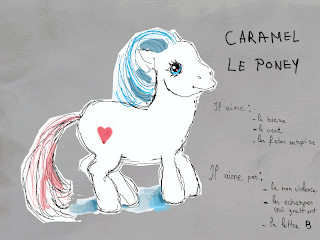 CARAMEL
LE PONEY
Il aime :
- la bière
- le vert
- les fêtes surprise
Il aime pas :
- la non violence
- les écharpes
qui grattent
- la lettre B